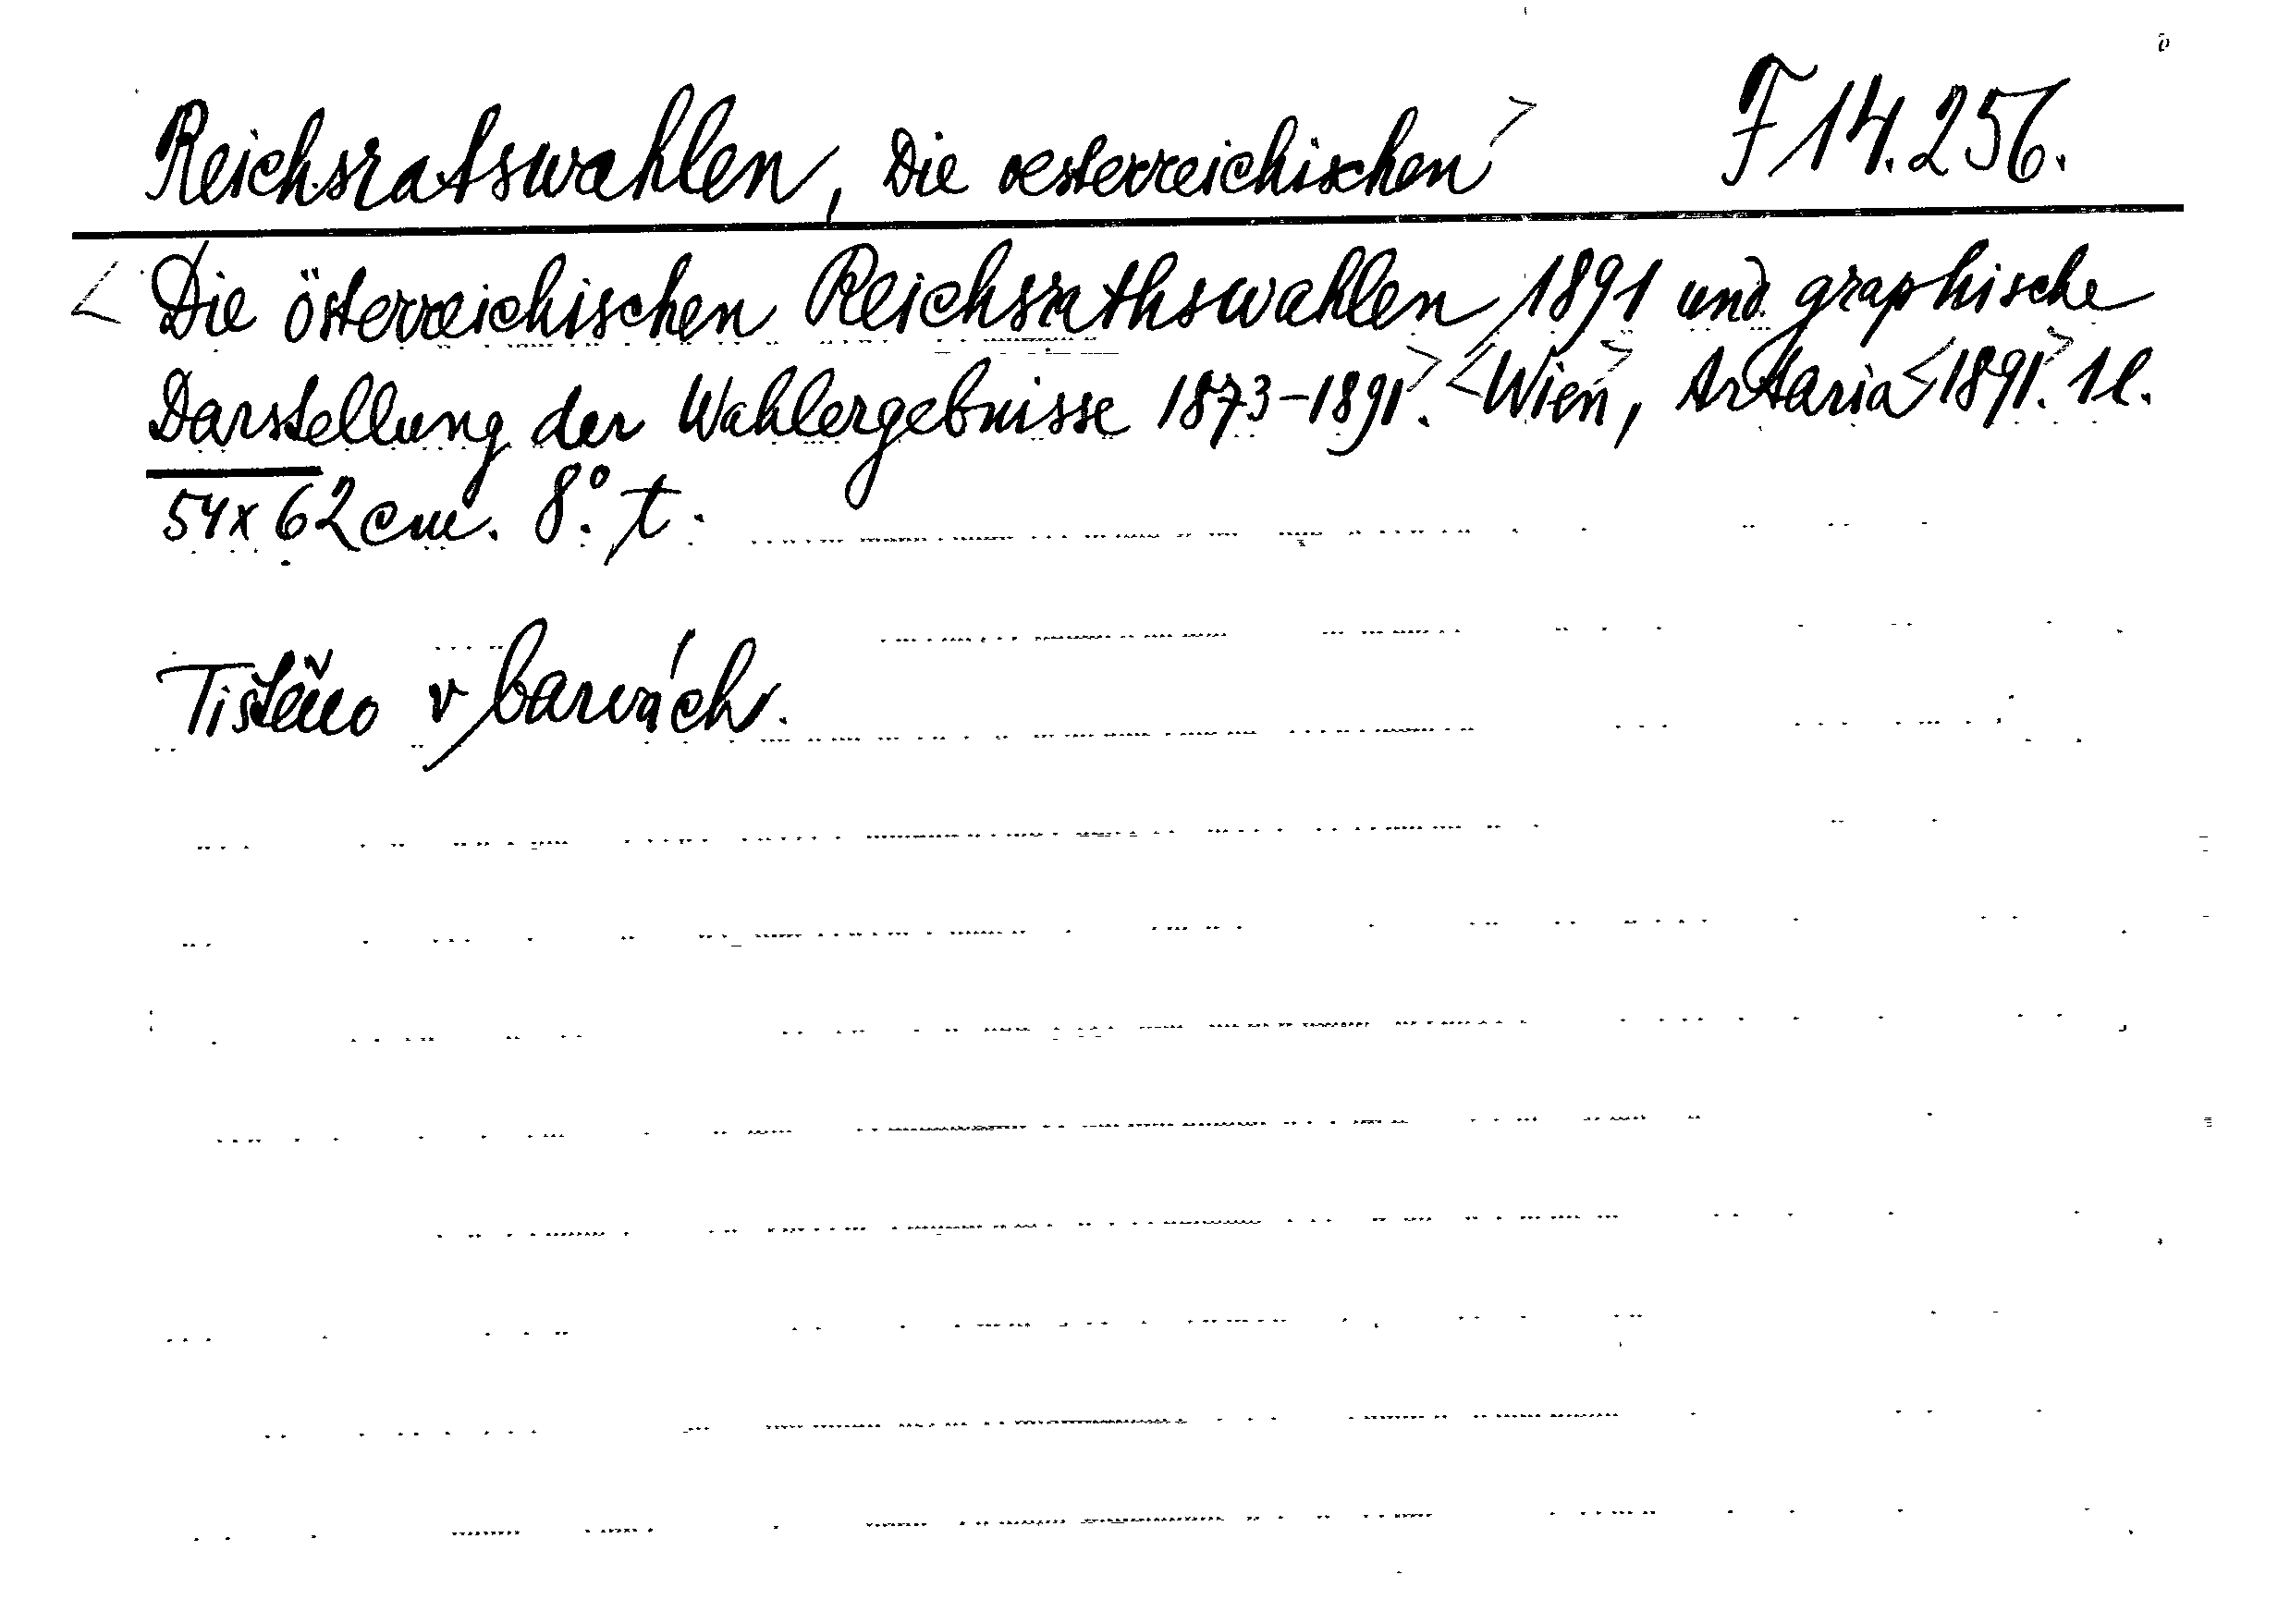 Reichsratswahlen, Die oesterreichischen> F 14.256.
<Die österreichischen Reichsrathswahlen 1891 und graphische
Darstellung der Wahlergebnisse 1873-1891>. <Wien>, Artaria <1891>. 1 l.
54x62 cm. 8°. t.
Tištěno v barvách.